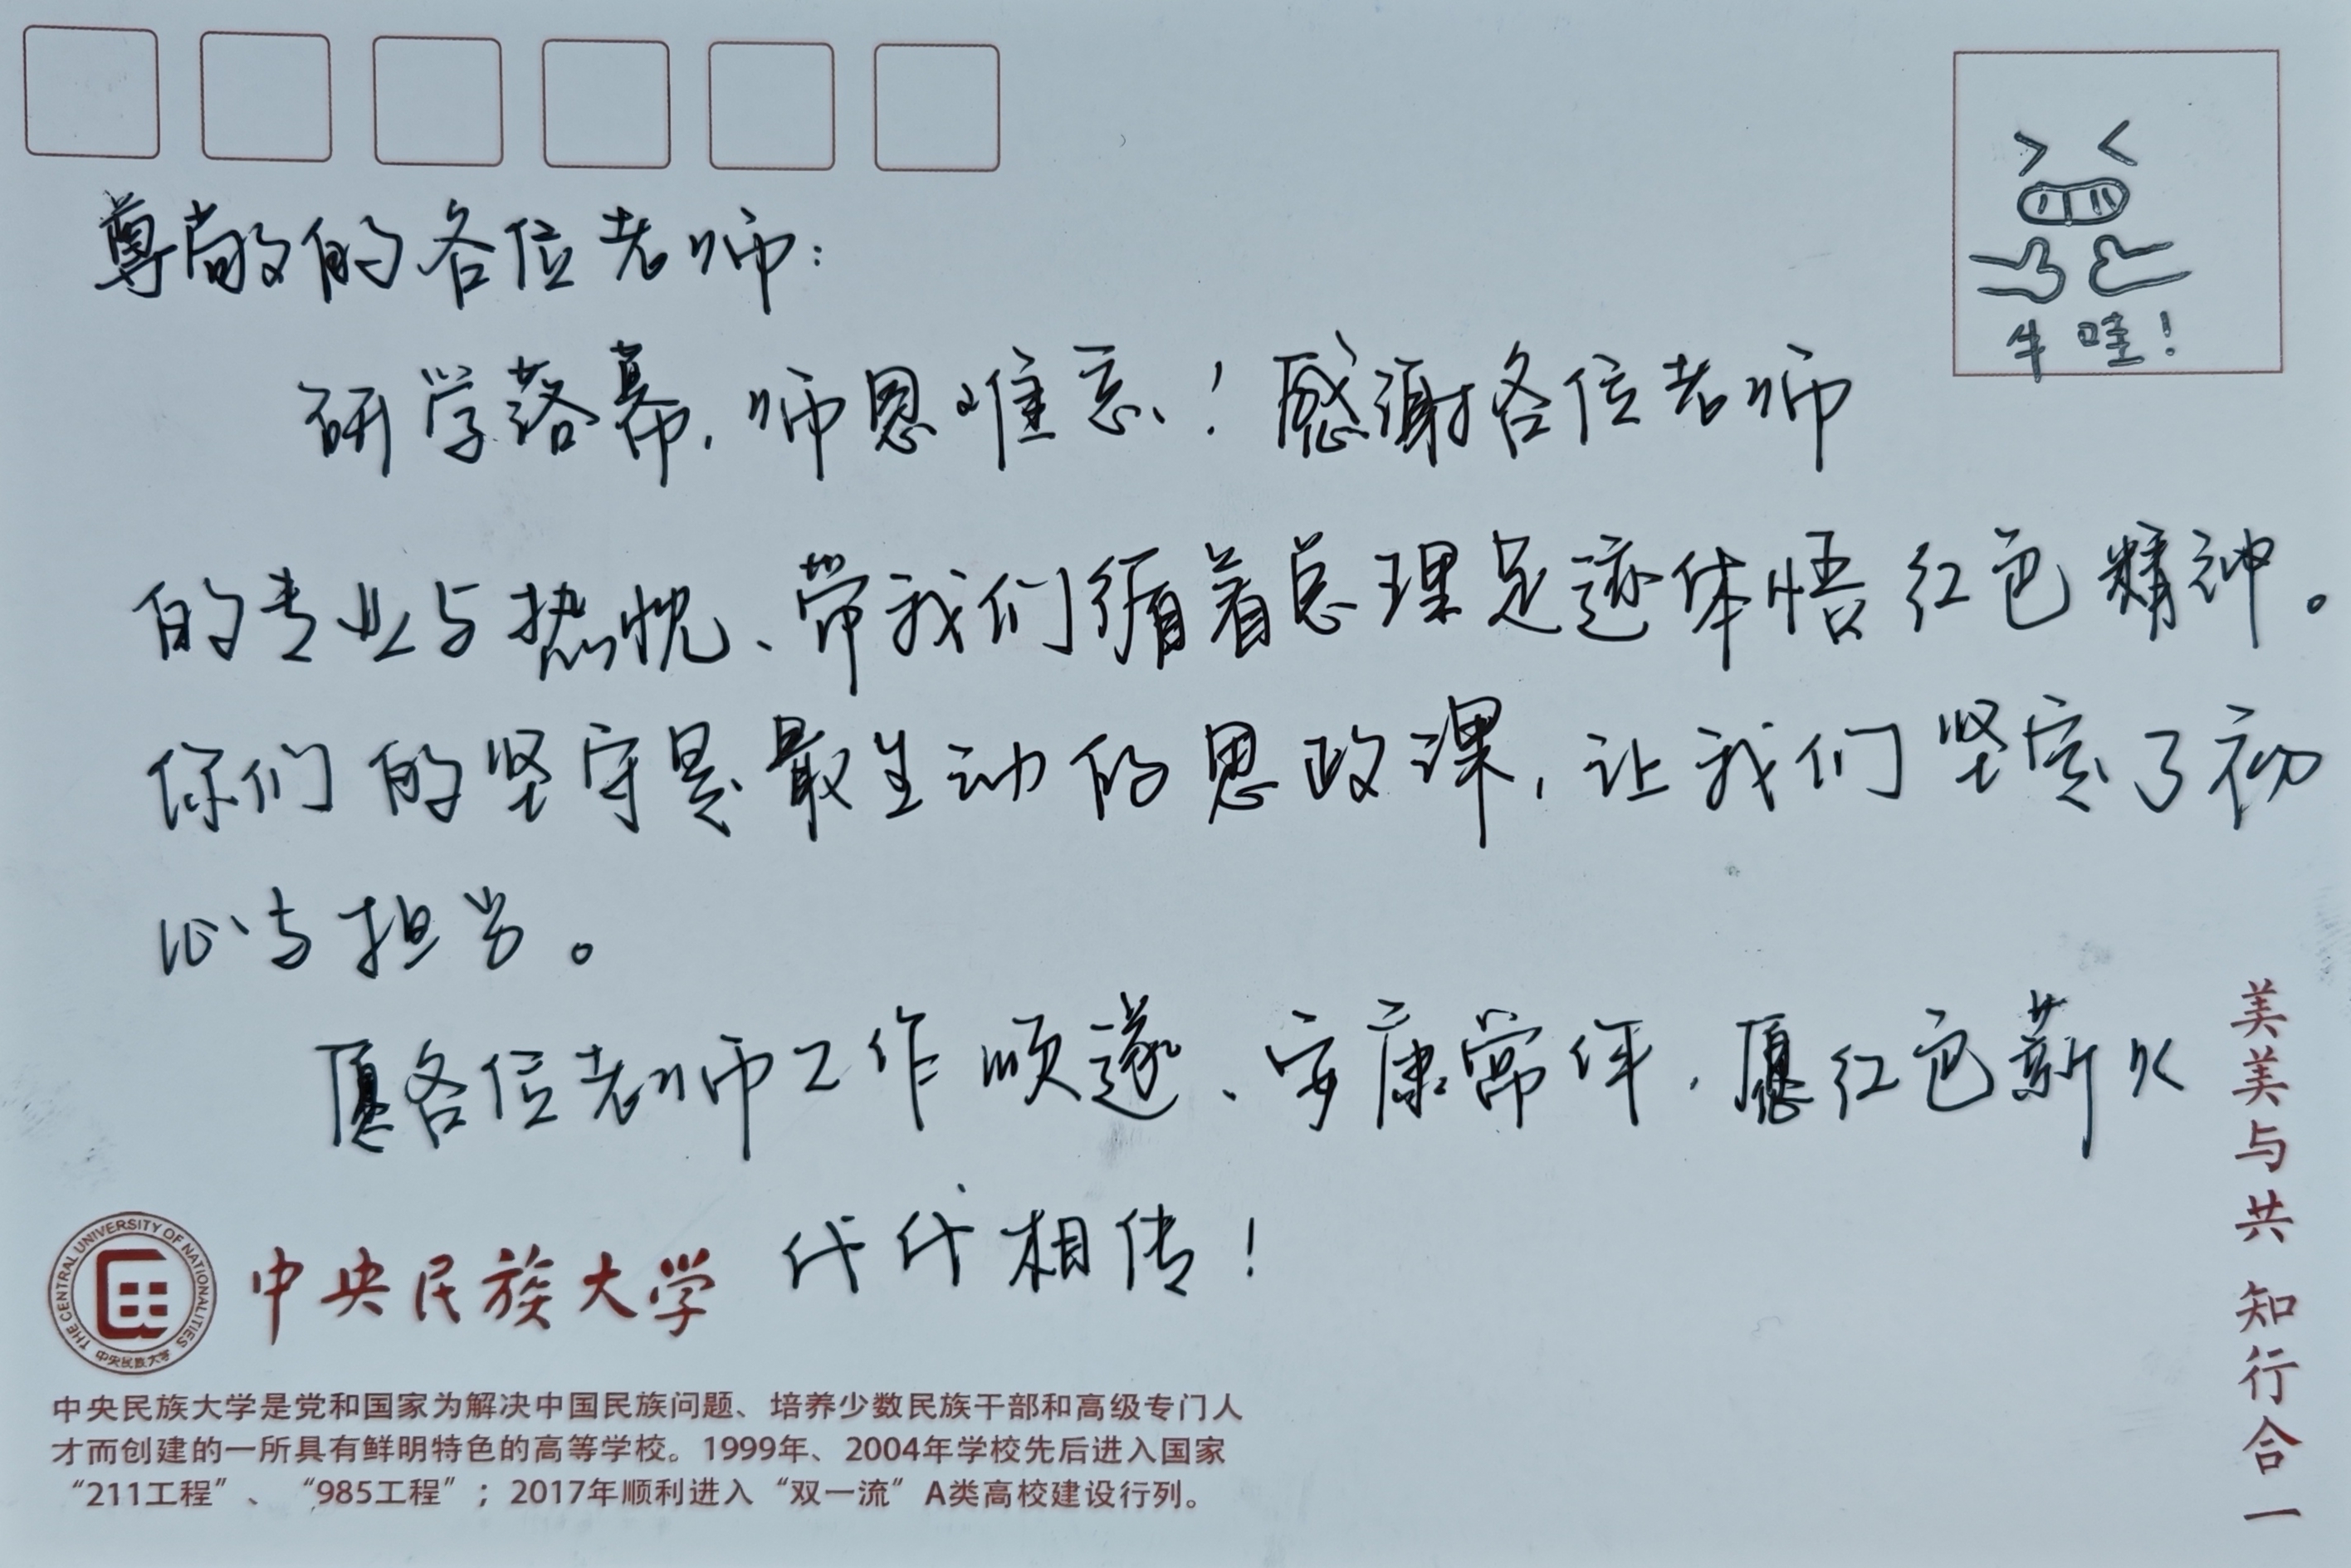 牛哇！
尊敬的各位老师：
研学落幕，师恩难忘！感谢各位老师
的专业与热忱、带我们循着总理足迹体悟红色精神。
你们的坚守是最生动的思政课，让我们坚定了初
心与担当。
愿各位老师工作顺遂、安康常伴，愿红色薪火
代代相传！
美美与共 知行合一
THE CENTRAL UNIVERSITY OF NATIONALITIES
中央民族大学
中央民族大学
中央民族大学是党和国家为解决中国民族问题、培养少数民族干部和高级专门人
才而创建的一所具有鲜明特色的高等学校。1999年、2004年学校先后进入国家
“211工程”、“985工程”；2017年顺利进入“双一流”A类高校建设行列。